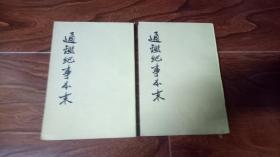 通鑑紀事本末
通鑑紀事本末